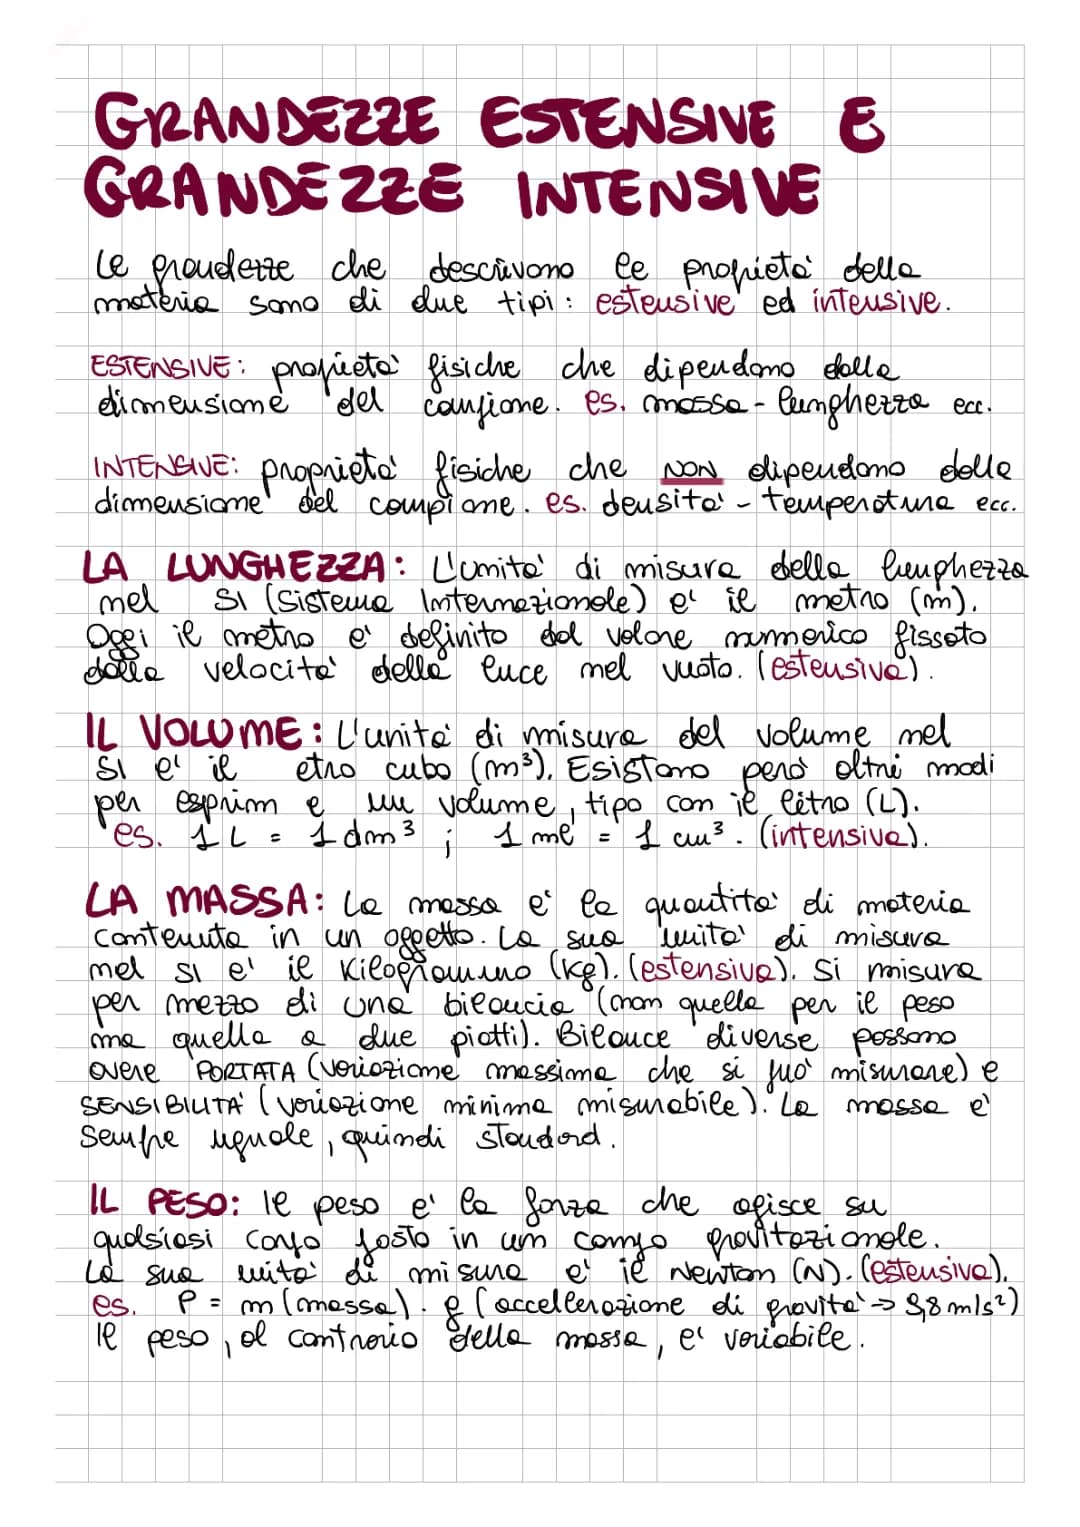 GRANDEZZE ESTENSIVE E
GRANDEZZE INTENSIVE
Le grandezze che descrivono le proprietà della
materia sono di due tipi: estensive ed intensive.
ESTENSIVE: proprietà fisiche che dipendono dalla
dimensione del campione. es. massa - lunghezza ecc.
INTENSIVE: proprietà fisiche che NON dipendono dalla
dimensione del campione. es. densità - temperatura ecc.
LA LUNGHEZZA: L'unità di misura della lunghezza
nel SI (Sistema Internazionale) è il metro (m).
Oggi il metro è definito dal valore numerico fissato
dalla velocità della luce nel vuoto. (estensiva).
IL VOLUME: L'unità di misura del volume nel
SI è il etro cubo (m³). Esistono però altri modi
per esprim e un volume, tipo con il litro (L).
es. 1 L = 1 dm³ ; 1 ml = 1 cm³. (intensiva).
LA MASSA: La massa è la quantità di materia
contenuta in un oggetto. La sua unità di misura
nel SI è il Kilogrammo (Kg). (estensiva). Si misura
per mezzo di una bilancia (non quella per il peso
ma quella a due piatti). Bilance diverse possono
avere PORTATA (variazione massima che si può misurare) e
SENSIBILITÀ (variazione minima misurabile). La massa è
sempre uguale, quindi standard.
IL PESO: Il peso è la forza che agisce su
qualsiasi corpo posto in un campo gravitazionale.
La sua unità di misura è il Newton (N). (estensiva).
es. P = m (massa) · g (accellerazione di gravità -> 9,8 m/s²)
Il peso, al contrario della massa, è variabile.